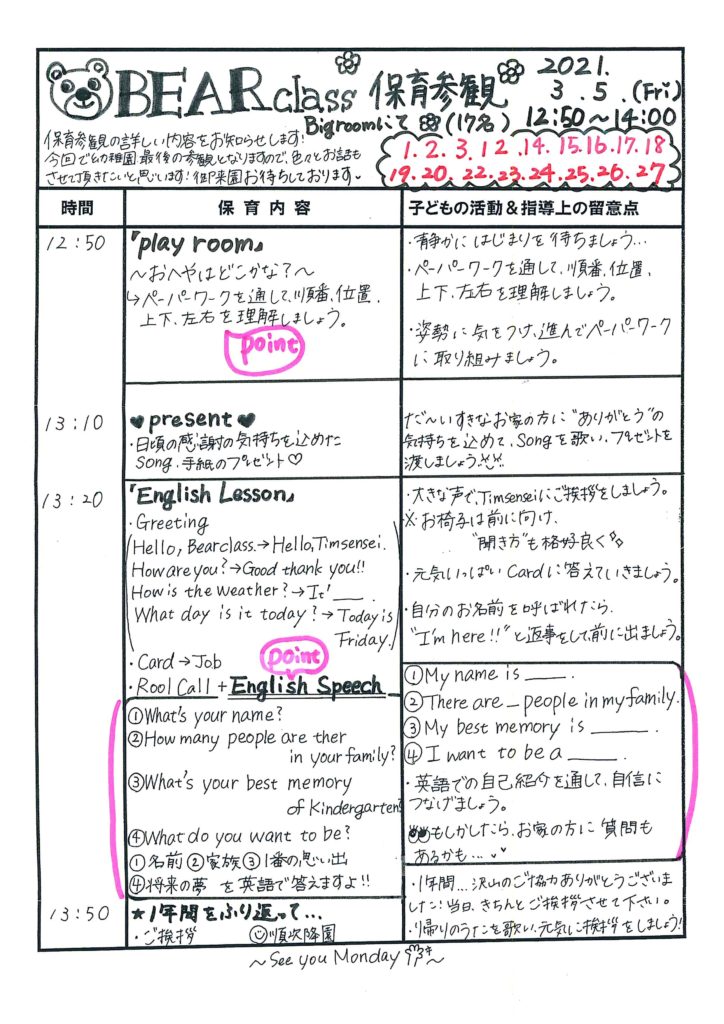 BEAR class 保育参観 2021. 3. 5. (Fri)
Bigroomにて (17名) 12:50～14:00
保育参観の詳しい内容をお知らせします!
今回で幼稚園最後の参観となりますので、色々とお話も
させて頂きたいと思います!御来園お待ちしております
1. 2. 3. 12. 14. 15. 16. 17. 18
19. 20. 22. 23. 24. 25. 26. 27
時間 保育内容 子どもの活動&指導上の留意点
12:50
『play room』
～おへやはどこかな?～
↳ペーパーワークを通して、順番、位置、
上下、左右を理解しましょう。
point
・静かにはじまりを待ちましょう…
・ペーパーワークを通して、順番、位置、
上下、左右を理解しましょう。
・姿勢に気をつけ、進んでペーパーワーク
に取り組みましょう。
13:10
♥present♥
・日頃の感謝の気持ちを込めた
Song、手紙のプレゼント♡
だ～いすきなお家の方に"ありがとう"の
気持ちを込めて、Songを歌い、プレゼントを
渡しましょう
13:20
『English Lesson』
・Greeting
Hello, Bearclass.→Hello,Timsensei.
How are you?→Good thank you!!
How is the weather?→It' ___.
What day is it today?→Today is
Friday.
・Card→Job
point
・Rool Call + English Speech
①What's your name?
②How many people are ther
in your family?
③What's your best memory
of Kindergarten?
④What do you want to be?
①名前 ②家族 ③1番の思い出
④将来の夢 を英語で答えますよ!!
・大きな声で、Timsenseiにご挨拶をしましょう。
※お椅子は前に向け、
"聞き方"も格好良く
・元気いっぱいCardに答えていきましょう。
・自分のお名前を呼ばれたら、
"I'm here!!"と返事をして、前に出ましょう。
①My name is ____.
②There are _ people in my family.
③My best memory is _____.
④I want to be a ____.
・英語での自己紹介を通して、自信に
つなげましょう。
もしかしたら、お家の方に質問も
あるかも…
13:50
★1年間をふり返って…
・ご挨拶 順次降園
・1年間…沢山のご協力ありがとうございま
した!当日、きちんとご挨拶させて下さい。
・帰りのうたを歌い、元気に挨拶をしましょう!
～See you Monday～